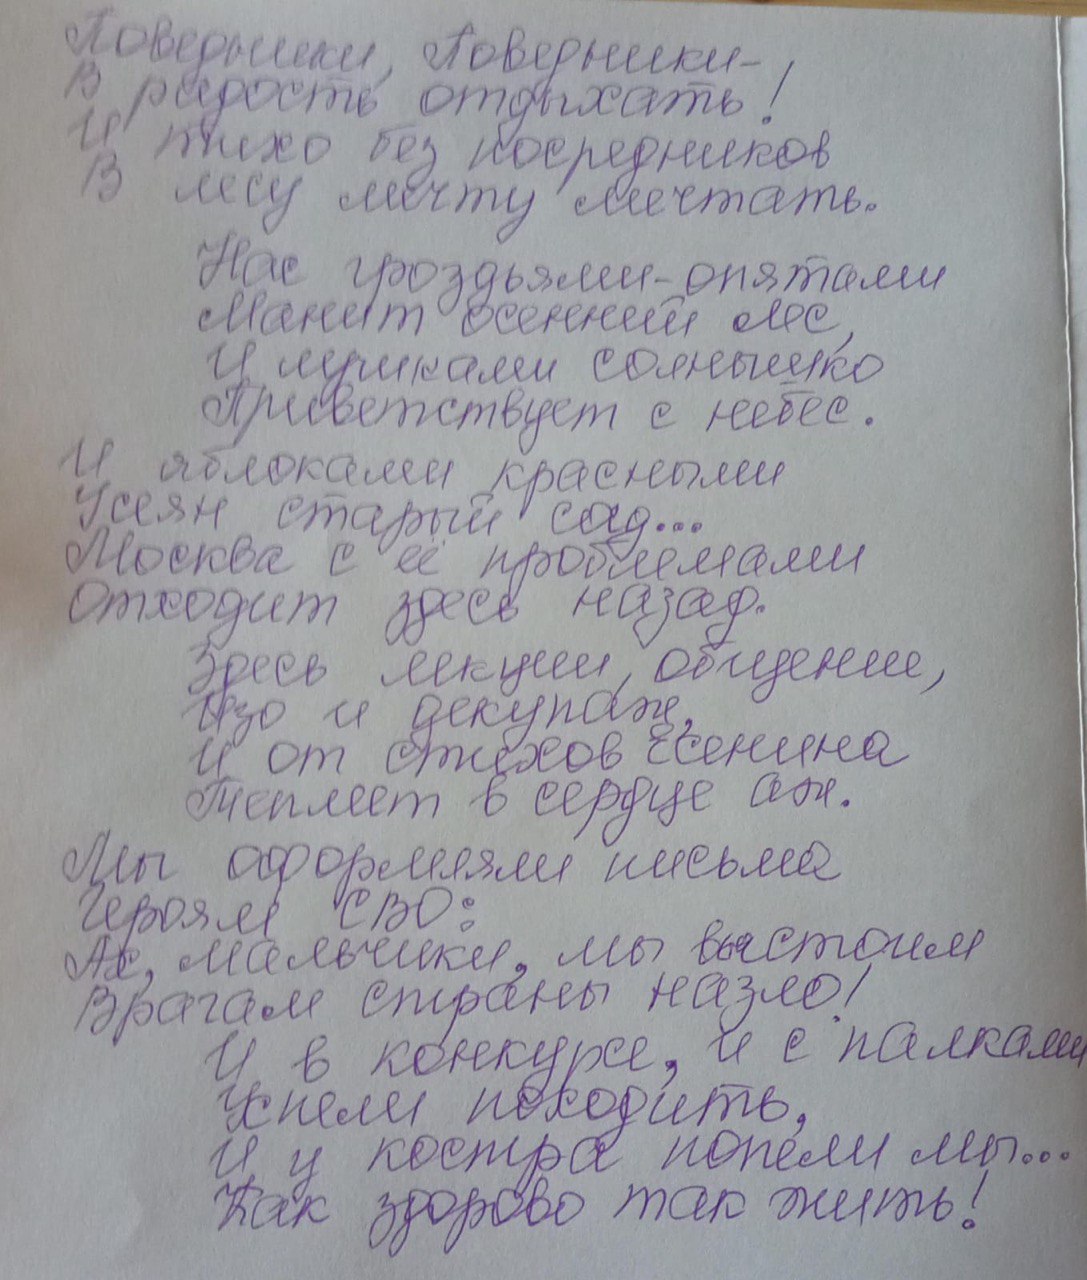 Поведники, Поведники –
В радость отдыхать!
И тихо без посредников
В лесу мечту мечтать.
Нас гроздьями-опятами
Манит осенний лес,
И лучиками солнышко
Приветствует с небес.
И яблоками красными
Усеян старый сад...
Москва с её проблемами
Отходит здесь назад.
Здесь лекции, общение,
Изо и декупаж,
И от стихов Есенина
Теплеет в сердце аж.
Мы оформляли письма
Героям СВО:
Ах, мальчики, мы выстоим
Врагам страны назло!
И в конкурсе, и с палками
Успели походить,
И у костра попели мы...
Как здорово так жить!